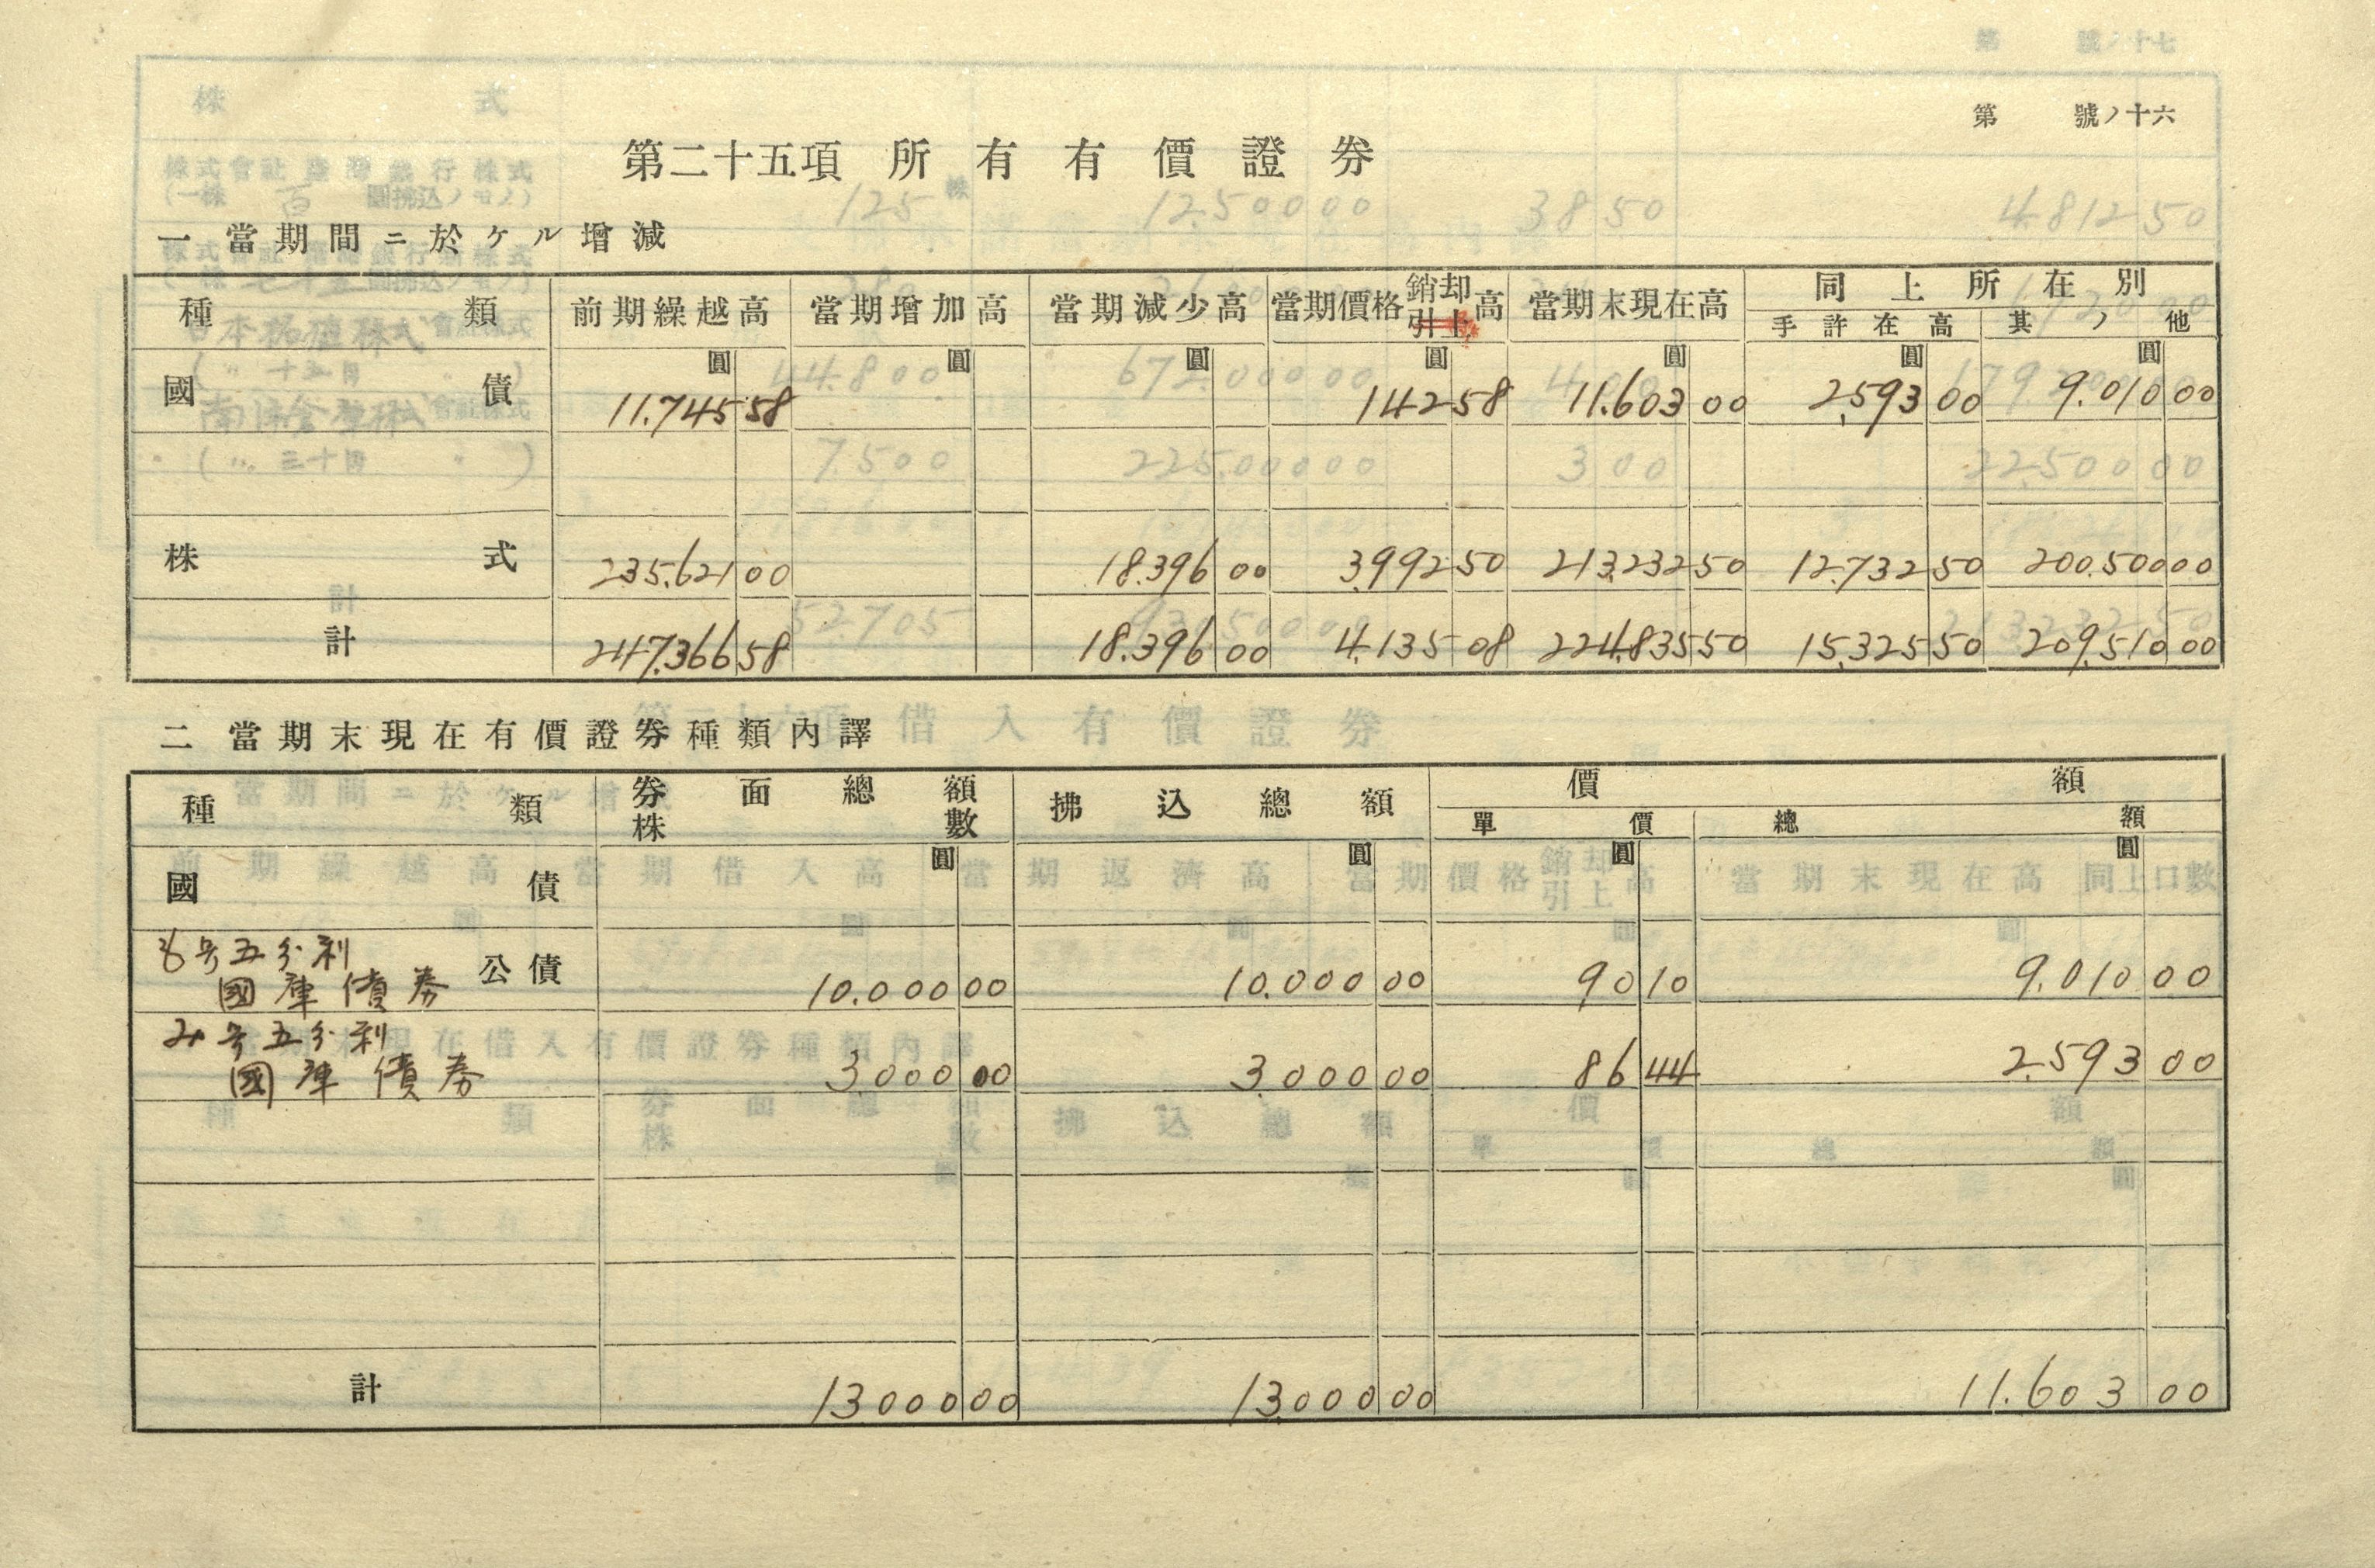 第 號ノ十六
第二十五項 所有有價證券
一 當期間ニ於ケル增減
種類 前期繰越高 當期增加高 當期減少高 當期價格銷却引上高 當期末現在高 同上所在別
手許在高 其ノ他
圓 圓 圓 圓 圓 圓 圓
國債 11.745 58 142 58 11.603 00 2.593 00 9.010 00
株式 235.621 00 18.396 00 3.992 50 213.232 50 12.732 50 200.500 00
計 247.366 58 18.396 00 4.135 08 224.835 50 15.325 50 209.510 00
二 當期末現在有價證券種類內譯
種類 券面總額 株數 拂込總額 價額
單價 總額
圓 圓 圓 圓
國債
號五分利
國庫債券 公債 10.000 00 10.000 00 90 10 9.010 00
み号五分利
國庫債券 3.000 00 3.000 00 86 44 2.593 00
計 13.000 00 13.000 00 11.603 00